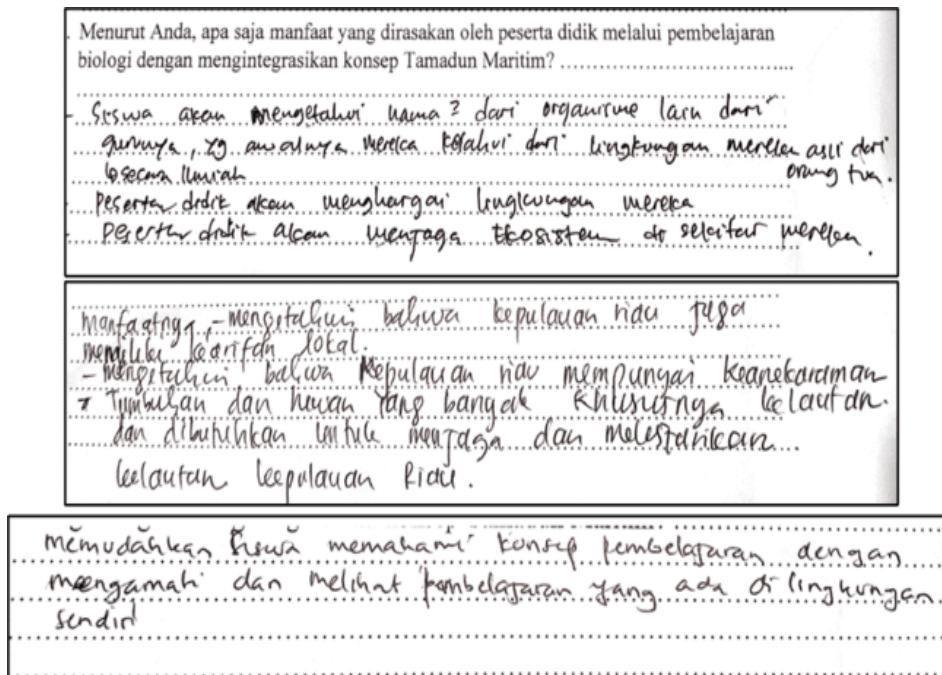 . Menurut Anda, apa saja manfaat yang dirasakan oleh peserta didik melalui pembelajaran
biologi dengan mengintegrasikan konsep Tamadun Maritim? ……………………………………
- Siswa akan mengetahui nama² dari organisme laut dari
gurunya, yg awalnya mereka ketahui dari lingkungan mereka asli dari
secara ilmiah orang tua.
- Peserta didik akan menghargai lingkungan mereka
- Peserta didik akan menjaga Ekosistem di sekitar mereka.
manfaatnya, - mengetahui bahwa kepulauan riau juga
memiliki kearifan lokal.
- Mengetahui bahwa Kepulauan riau mempunyai keanekaraman
Tumbuhan dan hewan yang banyak khususnya kelautan.
dan dibutuhkan untuk menjaga dan melestarikan
kelautan kepulauan Riau.
memudahkan siswa memahami konsep pembelajaran dengan
meengamati dan melihat pembelajaran yang ada di lingkungan
sendiri